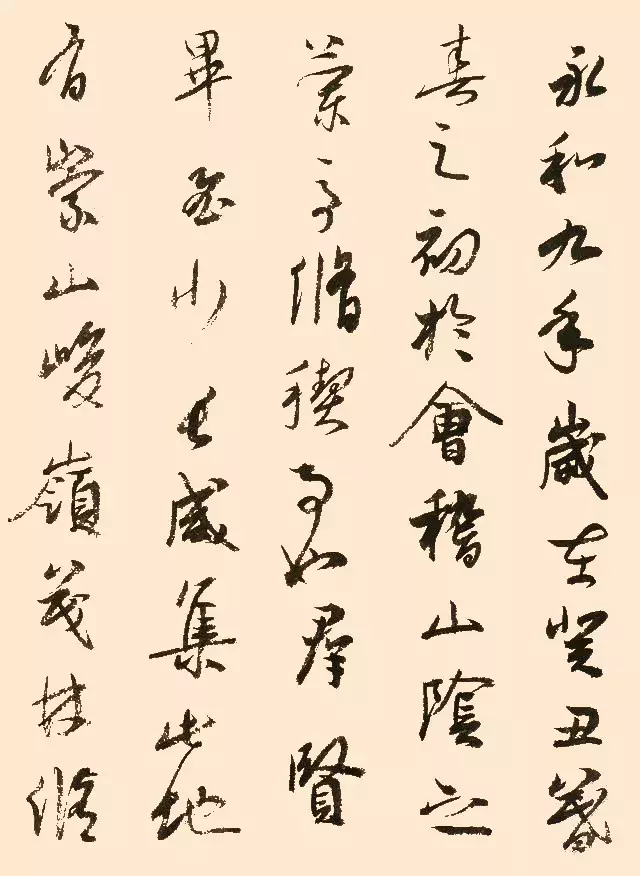 永和九年歲在癸丑暮
春之初於會稽山陰之
蘭亭脩稧事也群賢
畢至少長咸集此地
有崇山峻嶺茂林脩